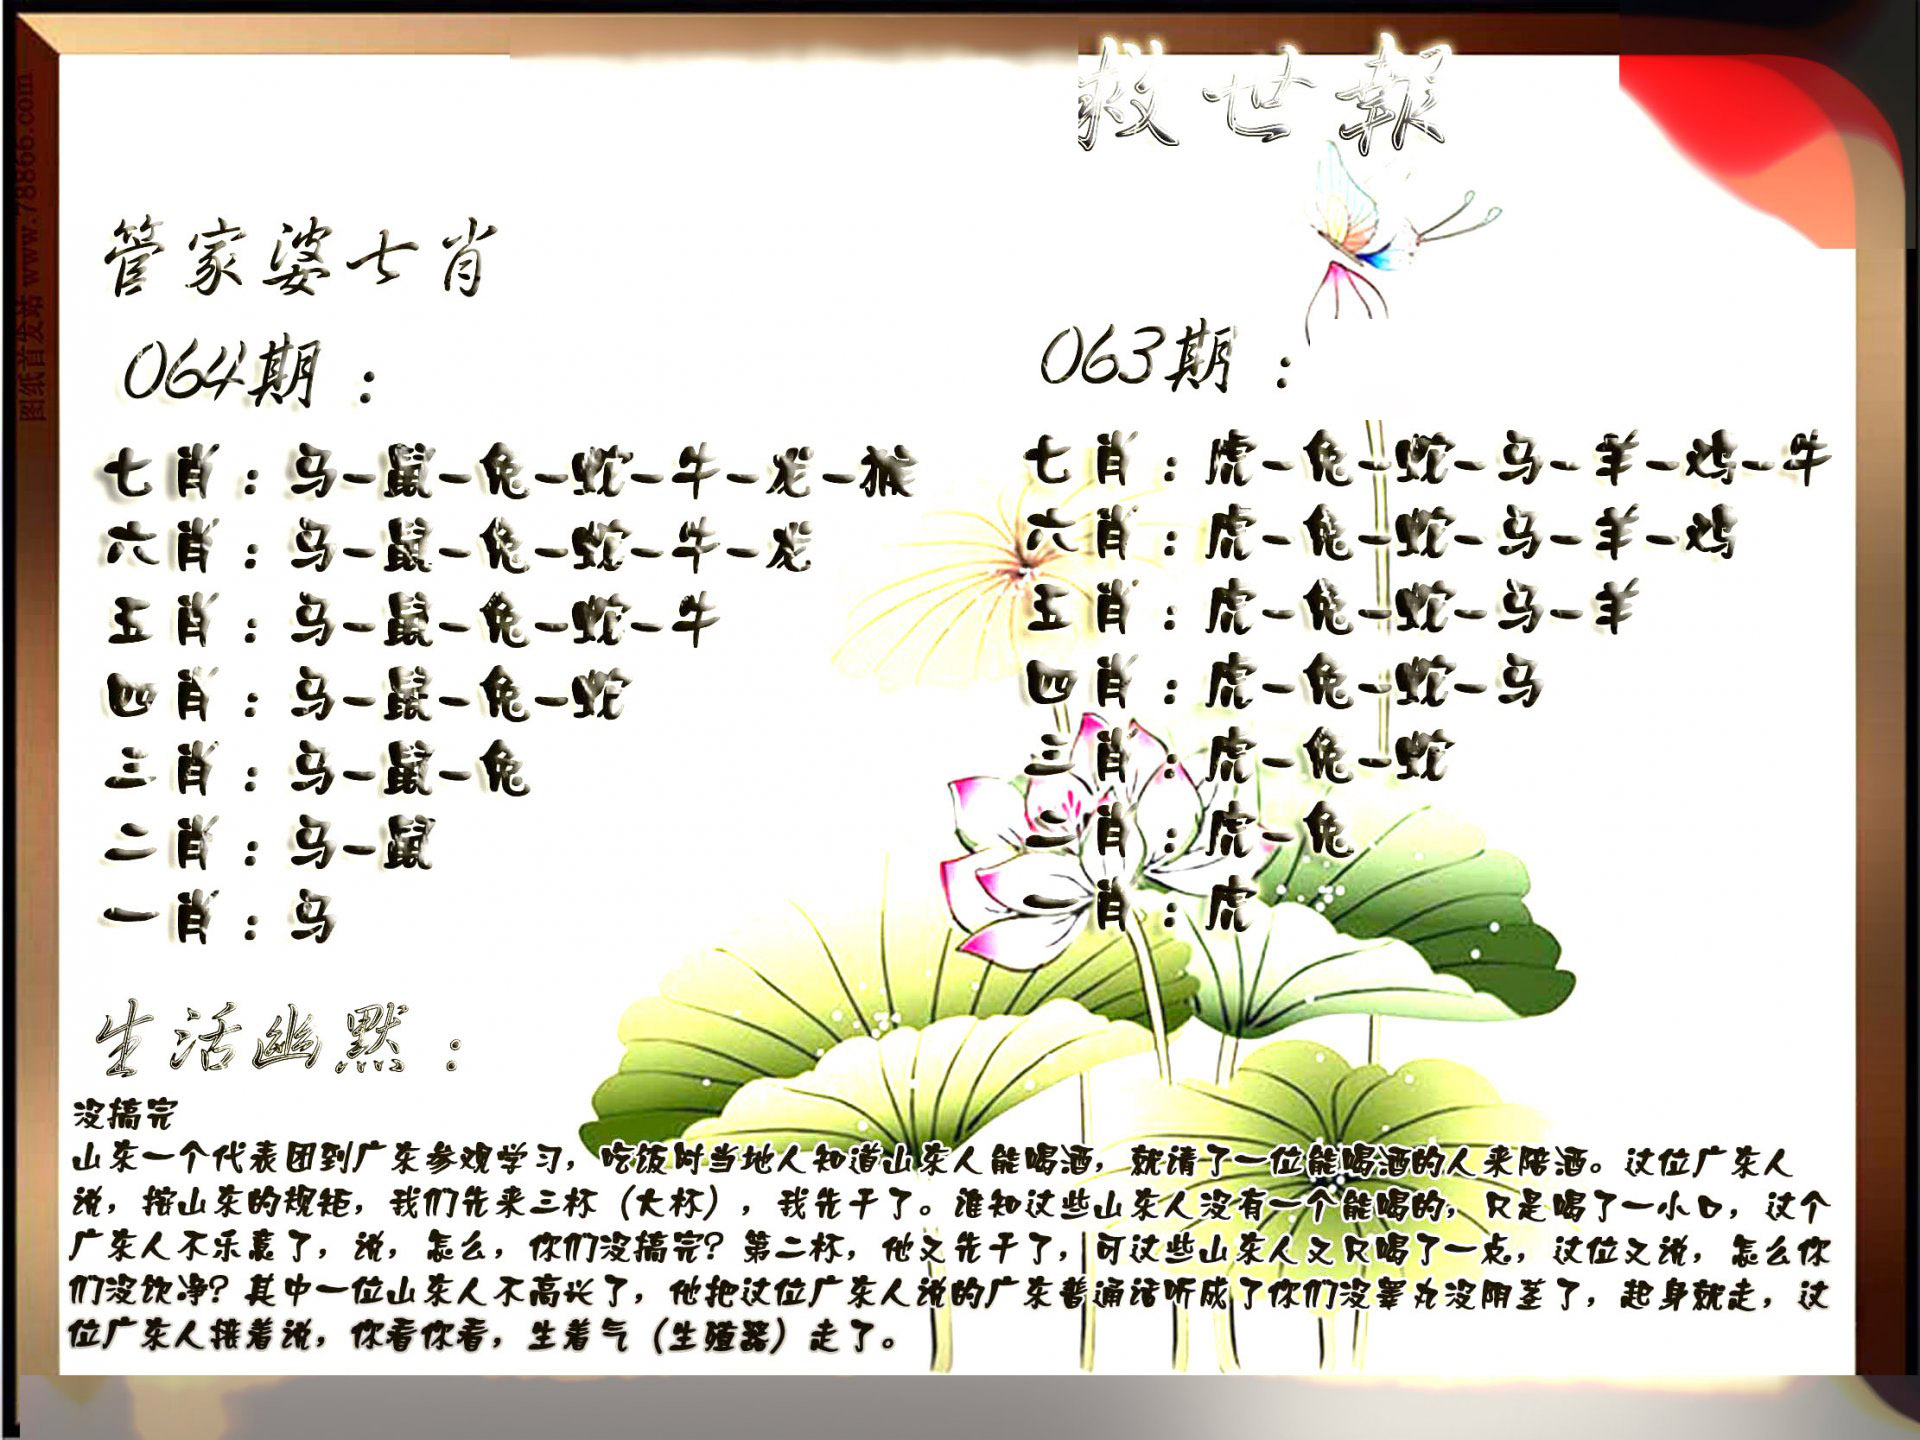 救世報
管家婆七肖
064期：
七肖：马-鼠-兔-蛇-牛-龙-猴
六肖：马-鼠-兔-蛇-牛-龙
五肖：马-鼠-兔-蛇-牛
四肖：马-鼠-兔-蛇
三肖：马-鼠-兔
二肖：马-鼠
一肖：马
063期：
七肖：虎-兔-蛇-马-羊-鸡-牛
六肖：虎-兔-蛇-马-羊-鸡
五肖：虎-兔-蛇-马-羊
四肖：虎-兔-蛇-马
三肖：虎-兔-蛇
二肖：虎-兔
一肖：虎
生活幽默：
没搞完
山东一个代表团到广东参观学习，吃饭时当地人知道山东人能喝酒，就请了一位能喝酒的人来陪酒。这位广东人
说，按山东的规矩，我们先来三杯（大杯），我先干了。谁知这些山东人没有一个能喝的，只是喝了一小口，这个
广东人不乐意了，说，怎么，你们没搞完？第二杯，他又先干了，可这些山东人又只喝了一点，这位又说，怎么你
们没饮净？其中一位山东人不高兴了，他把这位广东人说的广东普通话听成了你们没睾丸没阴茎了，起身就走，这
位广东人接着说，你看你看，生着气（生殖器）走了。
图纸首发站 www.78866.com